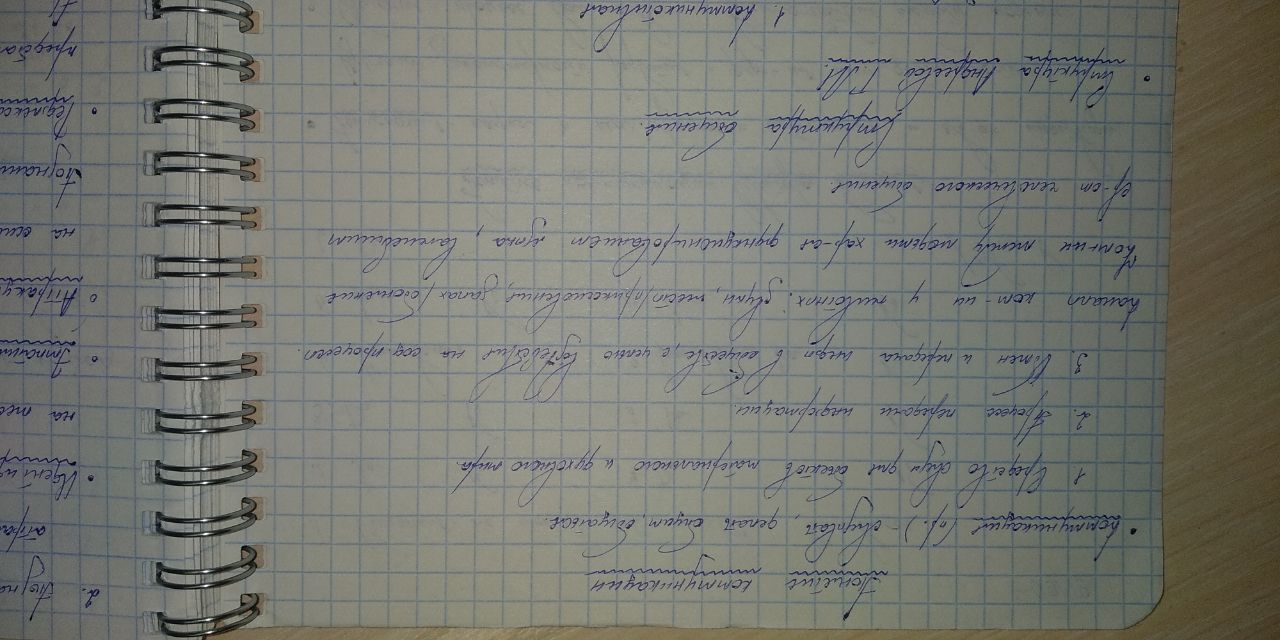 Понятие коммуникации
• Коммуникация (пр.) - связывать, делать общим, общаться.
1. Средство связи для объектов материального и духовного мира.
2. Процесс передачи информации.
3. Обмен и передача инф-ы в обществе, с целью воздействия на соц. процессы.
Каналы ком-ии у животных: звуки, жесты/прикосновения, запах/обоняние
между людьми хар-ся функционированием языка, важнейшим
ср-ом человеческого общения.
Структура общения.
• Структура Андреевой Г.М.
1. Коммуникативная
2. Позна
аттра
• Иденти
на
• Эмпатия
• Аттракц
на осн
Познани
• Рефлекси
предста